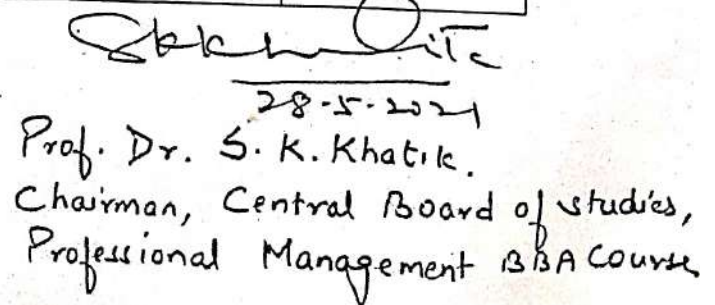 28-5-2021
Prof. Dr. S. K. Khatik.
Chairman, Central Board of studies,
Professional Management BBA Course